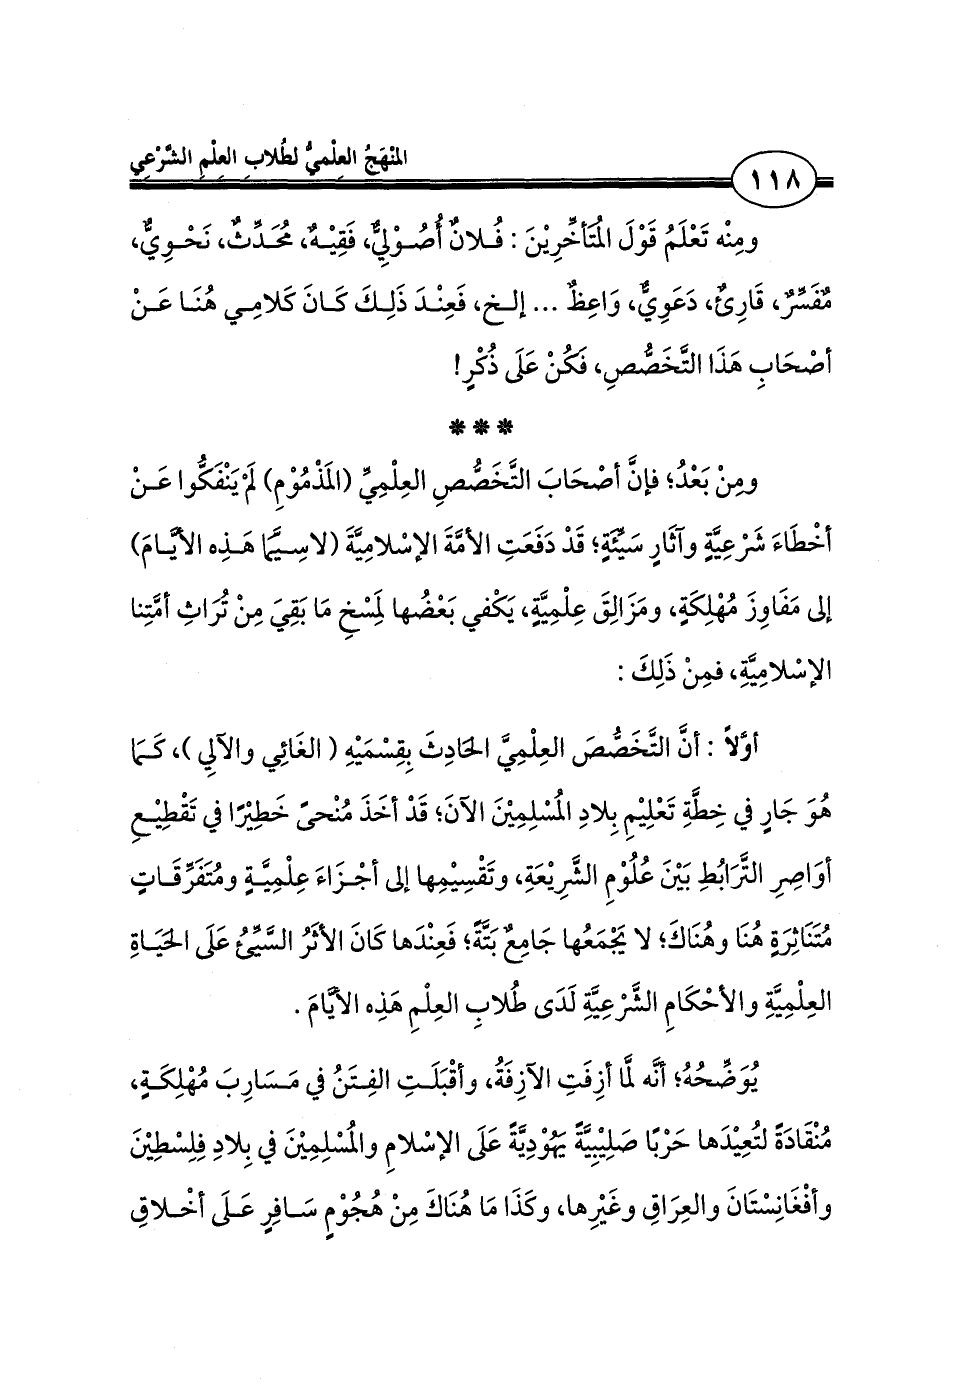 المَنْهَجُ العِلْميُّ لطُلابِ العِلْمِ الشَّرْعِي
١١٨
ومِنْه تَعْلَمُ قَوْلَ المُتَأخِّرِيْنَ : فُلانٌ أُصُوْليٌّ، فَقِيْهٌ، مُحَدِّثٌ، نَحْوِيٌّ،
مٌفَسِّرٌ، قَارِئٌ، دَعَوِيٌّ، وَاعِظٌ ... إلخ، فَعِنْدَ ذَلِكَ كَانَ كَلامِي هُنَا عَنْ
أصْحَابِ هَذَا التَّخَصُّصِ، فَكُنْ عَلَى ذُكْرٍ!
***
ومِنْ بَعْدُ؛ فإنَّ أصْحَابَ التَّخَصُّصِ العِلْمِيِّ (المَذْمُوْمِ) لَمْ يَنْفَكُّوا عَنْ
أخْطَاءَ شَرْعِيَّةٍ وآثَارٍ سَيِّئَةٍ؛ قَدْ دَفَعَتِ الأمَّةَ الإسْلامِيَّةَ (لاسِيَّمَا هَذِه الأيَّامَ)
إلى مَفَاوِزَ مُهْلِكَةٍ، ومَزَالِقَ عِلْمِيَّةٍ، يَكْفي بَعْضُها لمَسْخِ مَا بَقِيَ مِنْ تُرَاثِ أمَّتِنا
الإسْلامِيَّةِ، فمِنْ ذَلِكَ :
أوَّلاً : أنَّ التَّخَصُّصَ العِلْمِيَّ الحَادِثَ بِقِسْمَيْهِ ( الغَائِي والآلِي )، كَمَا
هُوَ جَارٍ في خِطَّةِ تَعْلِيْمِ بِلادِ المُسْلِمِيْنَ الآنَ؛ قَدْ أخَذَ مُنْحىً خَطِيْرًا في تَقْطِيْعِ
أوَاصِرِ التَّرَابُطِ بَيْنَ عُلُوْمِ الشَّرِيْعَةِ، وتَقْسِيْمِها إلى أجْزَاءَ عِلْمِيَّةٍ ومُتَفَرِّقَاتٍ
مُتَنَاثِرَةٍ هُنَا وهُنَاكَ؛ لا يَجْمَعُها جَامِعٌ بَتَّةً؛ فَعِنْدَها كَانَ الأثَرُ السَّيِّئُ عَلَى الحَيَاةِ
العِلْمِيَّةِ والأحْكَامِ الشَّرْعِيَّةِ لَدَى طُلابِ العِلْمِ هَذِه الأيَّامَ .
يُوَضِّحُهُ؛ أنَّه لمَّا أزِفَتِ الآزِفَةُ، وأقْبَلَتِ الفِتَنُ في مَسَارِبَ مُهْلِكَةٍ،
مُنْقَادَةً لتُعِيْدَها حَرْبًا صَلِيْبِيَّةً يَهُوْدِيَّةً عَلَى الإسْلامِ والمُسْلِمِيْنَ في بِلادِ فِلِسْطِيْنَ
وأفْغَانِسْتَانَ والعِرَاقِ وغَيْرِها، وكَذَا مَا هُنَاكَ مِنْ هُجُوْمٍ سَافِرٍ عَلَى أخْلاقِ